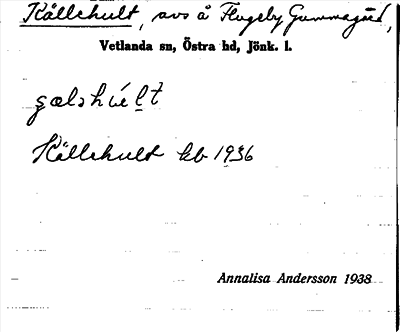 Källehult, avs å Flugeby Gummagård,
Vetlanda sn, Östra hd, Jönk. l.
Källehult kb 1936
Annalisa Andersson 1938